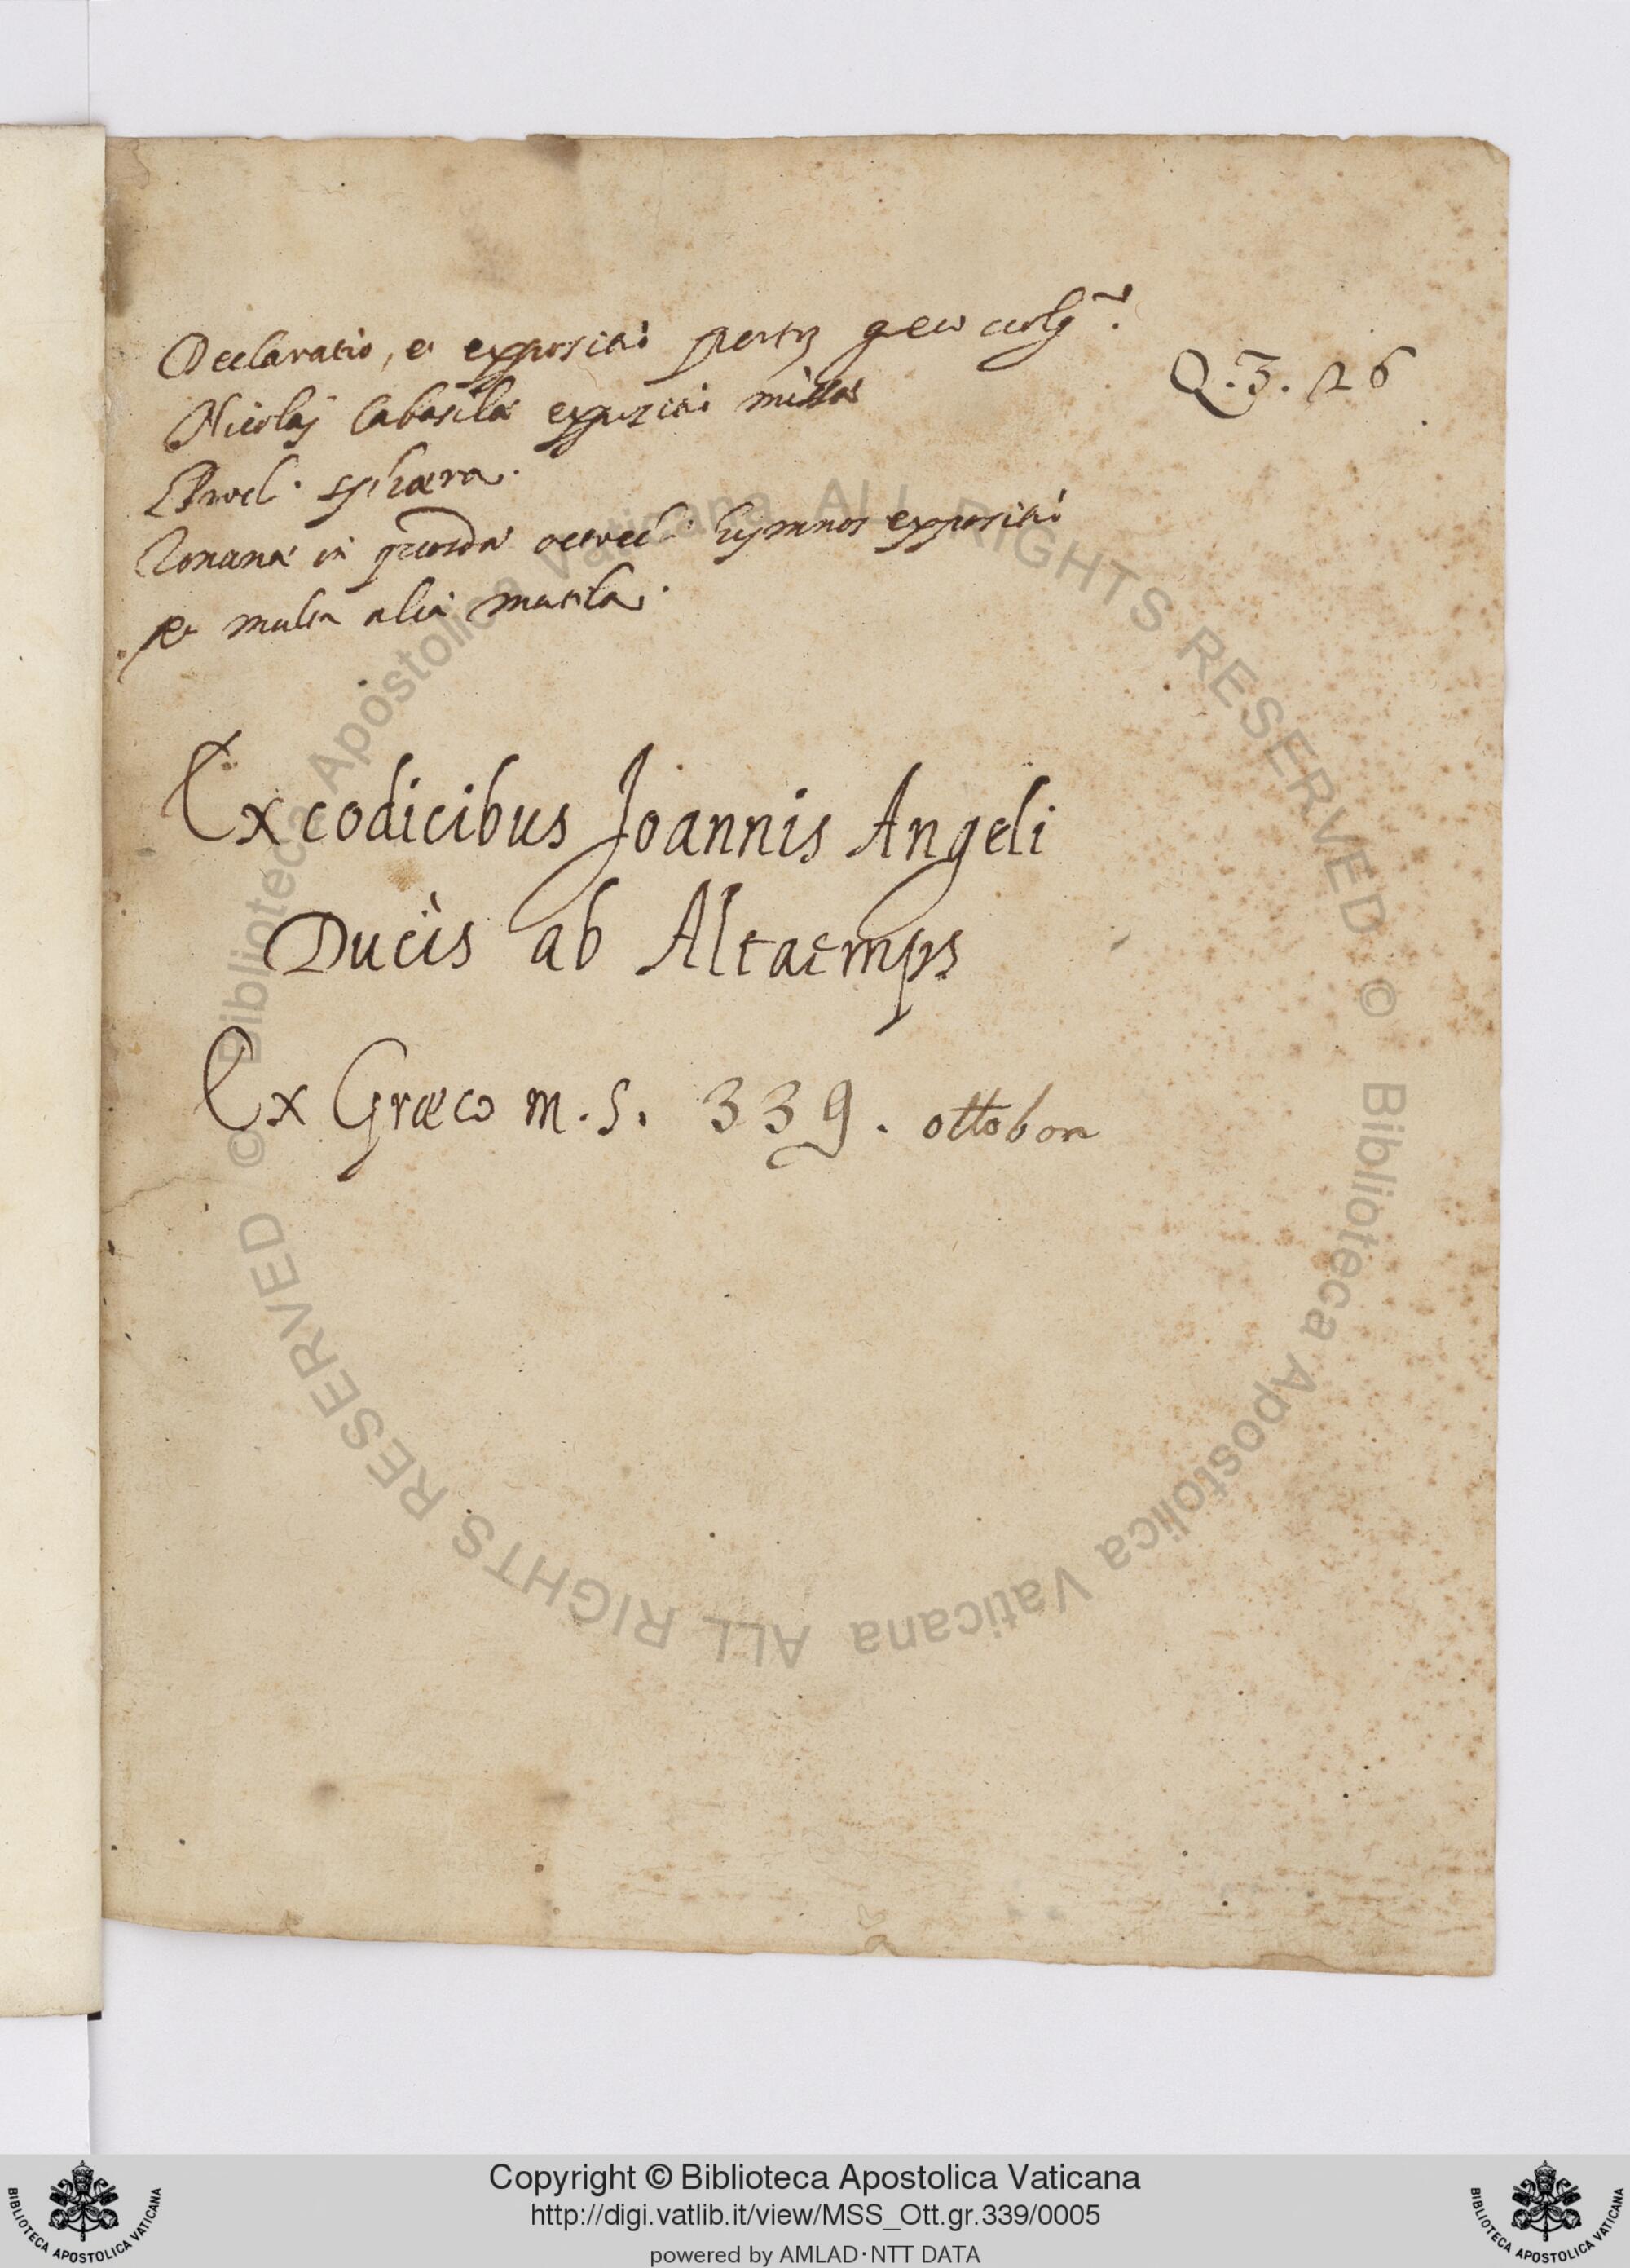 Declaratio, et expositio
Q. 3. 26
Nicolaj Cabasilae expositio missae
Procl. sphaera.
Zonarae in hymnos expositio
et multa alia mutila.
Ex codicibus Joannis Angeli
Ducis ab Altaemps
Ex Graeco m. s. 339. ottobon
© Biblioteca Apostolica Vaticana ALL RIGHTS RESERVED
© Biblioteca Apostolica Vaticana ALL RIGHTS RESERVED
BIBLIOTECA APOSTOLICA VATICANA
Copyright © Biblioteca Apostolica Vaticana
http://digi.vatlib.it/view/MSS_Ott.gr.339/0005
powered by AMLAD·NTT DATA
BIBLIOTECA APOSTOLICA VATICANA